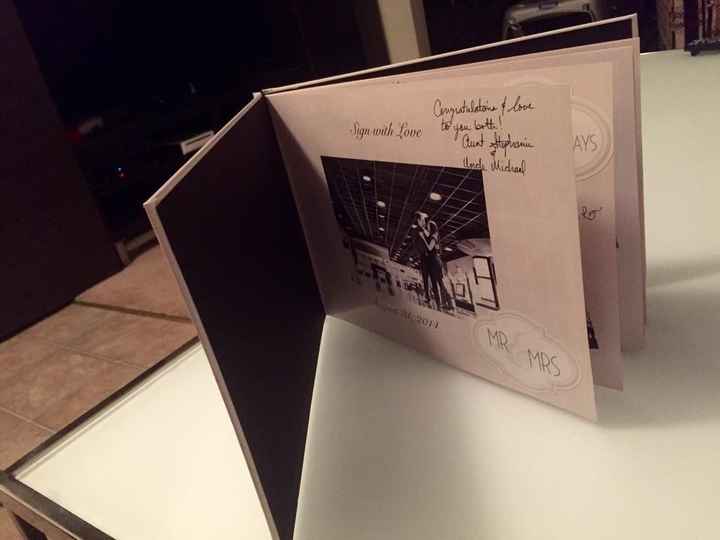 Sign with Love
Congratulations & love
to you both!
Aunt Stephanie
&
Uncle Michael
2014
MR MRS
AYS